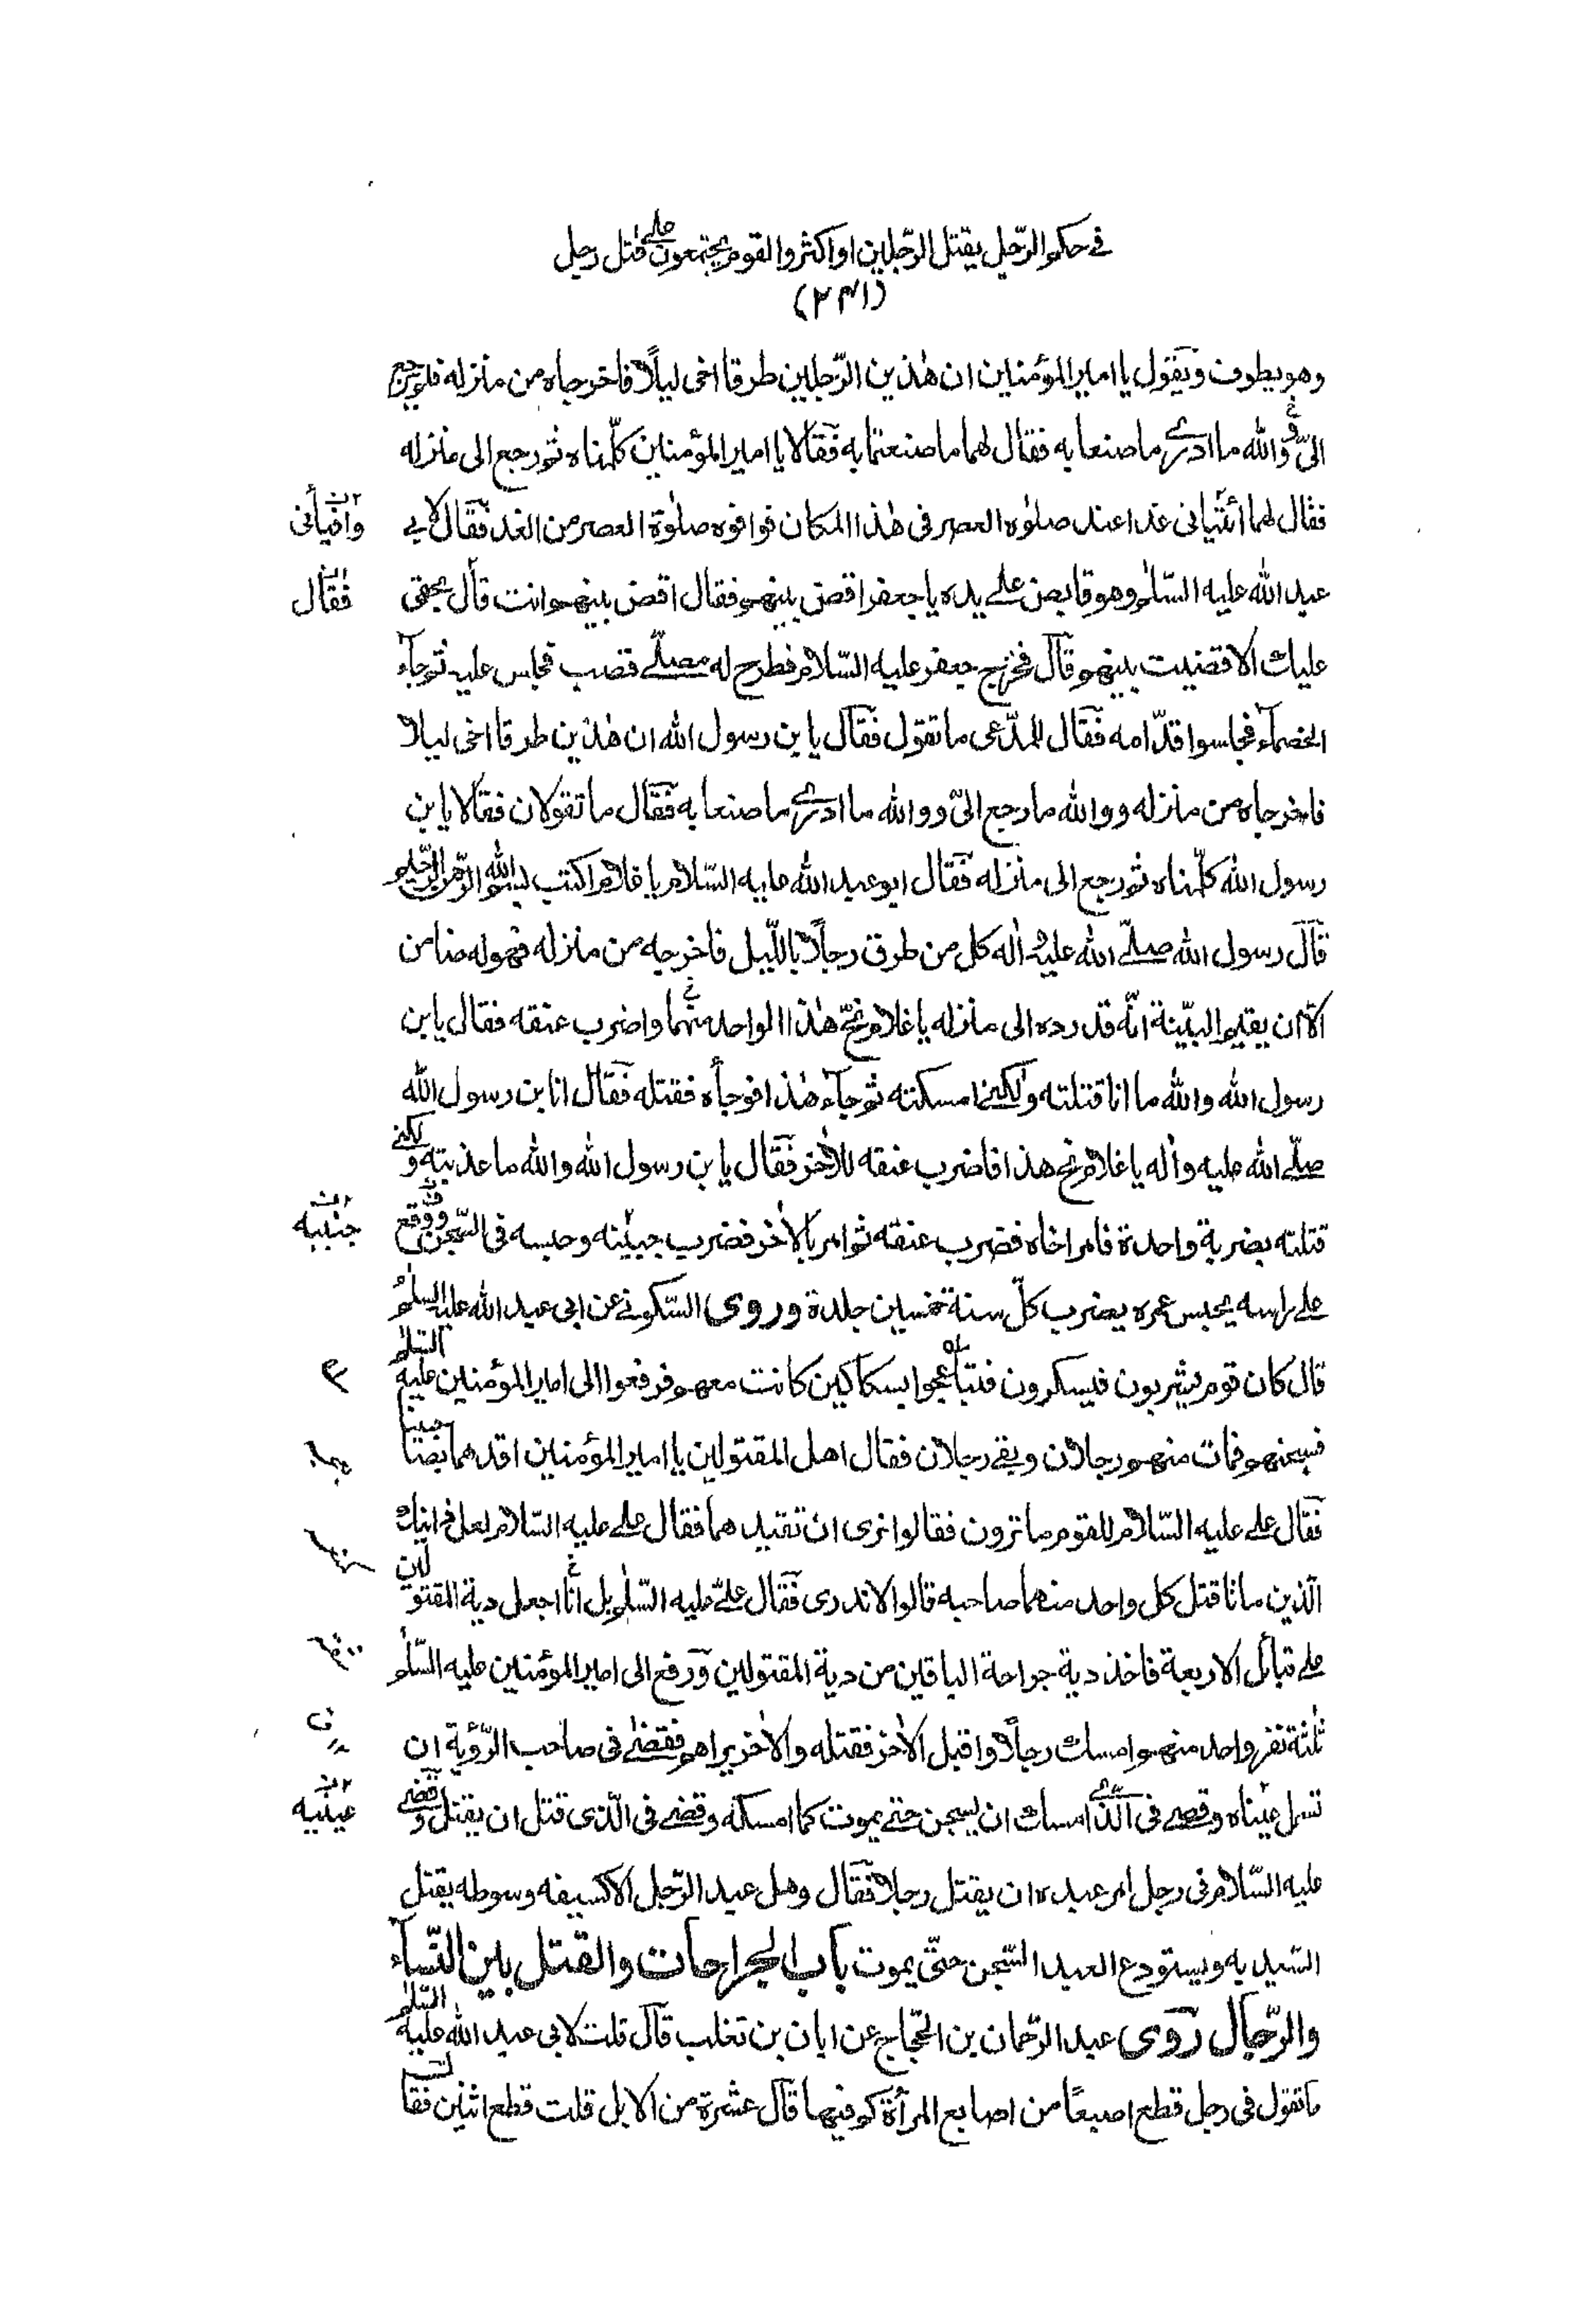 في حكم الرّجل يقتل الرّجلين او اكثر والقوم يجتمعون على قتل رجل
(٢٣١)
وهو يطوف ويقول يا امير المؤمنين ان هٰذين الرّجلين طرقا اخى ليلًا فاخرجاه من منزله فلم يرجع
الىّ ووالله ما ادرى ما صنعا به فقال لهما ما صنعتما به فقالا يا امير المؤمنين كلّمناه ثم رجع الى منزله
فقال لهما ائتيانى غدا عند صلوٰة العصر فى هٰذا المكان فوافوه صلوٰة العصر من الغد فقال لابي
وافيانى
عبد الله عليه السّلٰم وهو قابض على يده يا جعفر اقض بينهم فقال اقض بينهم انت قال بحقى
فقال
عليك الا قضيت بينهم قال فخرج جعفر عليه السّلام فطرح له مصلّى قصب فجلس عليه ثم جآء
الخصمآء فجلسوا قدّامه فقال للمدّعى ما تقول فقال يا بن رسول الله ان هٰذين طرقا اخى ليلا
فاخرجاه من منزله ووالله ما رجع الىّ ووالله ما ادرى ما صنعا به فقال ما تقولان فقالا يا بن
رسول الله كلّمناه ثم رجع الى منزله فقال ابو عبد الله عليه السّلام يا غلام اكتب بسم الله الرّحمٰن الرّحيم
قال رسول الله صلّى الله عليه وآله كل من طرق رجلًا باللّيل فاخرجه من منزله فهو له ضامن
الّا ان يقيم البيّنة انّه قد رده الى منزله يا غلام نحّ هٰذا الواحد منهما واضرب عنقه فقال يا بن
رسول الله والله ما انا قتلته ولكنى امسكته ثم جآء هٰذا فوجأه فقتله فقال انا بن رسول الله
صلّى الله عليه وآله يا غلام نح هذا فاضرب عنقه للآخر فقال يا بن رسول الله والله ما عذبته ولكنى
قتلته بضربة واحدة فامر اخاه فضرب عنقه ثم امر بالآخر فضرب جبينه وحبسه فى السّجن ووقع
جنبيه
على راسه يحبس عمره يضرب كلّ سنة خمسين جلدة وروى السّكوني عن ابى عبد الله عليه السلٰم
قال كان قوم يشربون فيسكرون فتباعجوا بسكاكين كانت معهم فرفعوا الى امير المؤمنين عليه السّلٰم
فسجنهم فمات منهم رجلان وبقى رجلان فقال اهل المقتولين يا امير المؤمنين اقدهما بصاحبينا
فقال على عليه السّلام للقوم ما ترون فقالوا نرى ان تقيدهما فقال على عليه السّلام لعل ذاينك
الّذين ماتا قتل كل واحد منهما صاحبه قالوا لا ندرى فقال علىّ عليه السّلٰم بل انا اجعل دية المقتولين
على قبائل الاربعة فاخذ دية جراحة الباقين من دية المقتولين ورفع الى امير المؤمنين عليه السّلٰم
ثلٰثة نفر واحد منهم امسك رجلًا واقبل الآخر فقتله والآخر يراهم فقضى فى صاحب الرّؤية ان
تسمل عيناه وقضى فى الّذى امسك ان يسجن حتى يموت كما امسكه وقضى فى الّذى قتل ان يقتل وقضى
عينيه
عليه السّلام فى رجل امر عبده ان يقتل رجلا فقال وهل عبد الرّجل الا كسيفه وسوطه يقتل
السّيد به ويستودع العبد السّجن حتّى يموت باب الجراحات والقتل بين النّسآء
والرّجال روى عبد الرّحمان بن الحجّاج عن ابان بن تغلب قال قلت لابى عبد الله عليه السّلٰم
ما تقول فى رجل قطع اصبعًا من اصابع المرأة كم فيها قال عشرة من الابل قلت قطع اثنين فقال